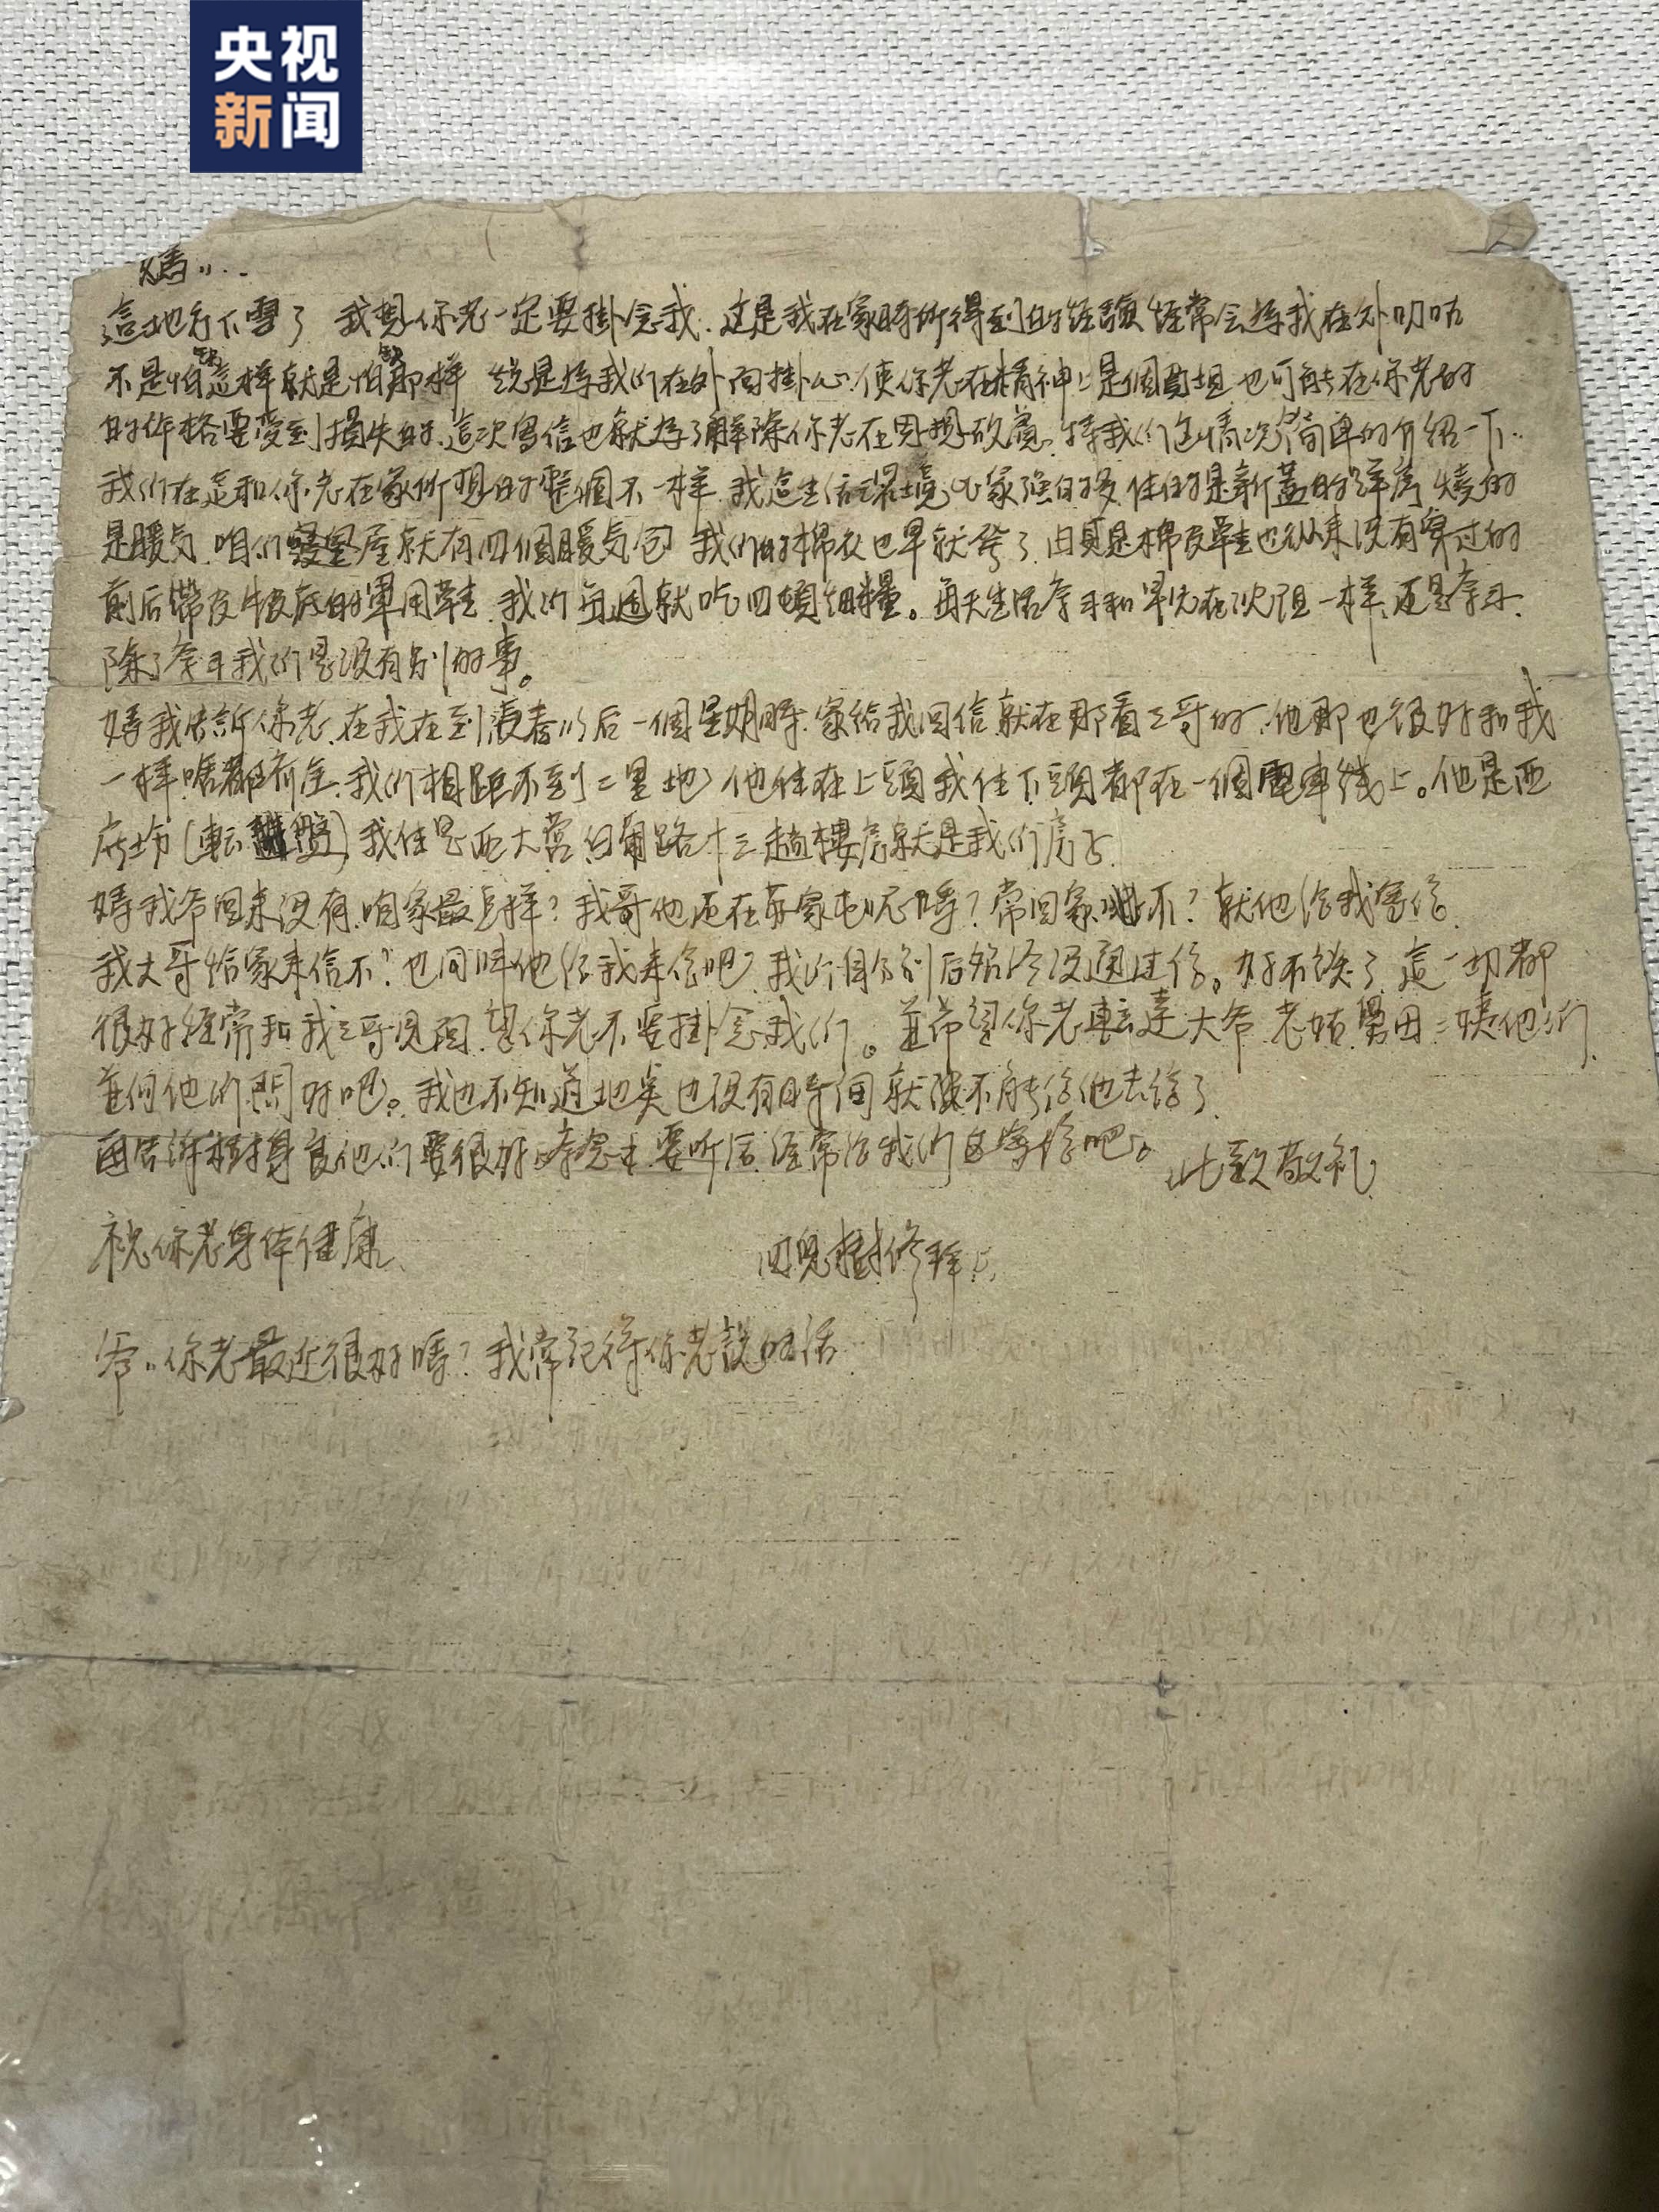 央视
新闻
媽：…
這地方下雪了 我想你老一定要掛念我.这是我在家時所得到的经驗 经常会為我在外叨咕
不是怕缺這样就是怕缺那样 総是為我们在外面掛心.使你老在精神上是個負担 也可能在你老的
的体格要受到損失的.這次寫信也就為了解除你老在思想改意.将我们的情况簡單的介紹一下.
我们在這和你老在家所想的整個不一样.我這生活環境比家強的多 住的是新蓋的洋房 燒的
是暖气.咱们屋就有四個暖气包 我们的棉衣也早就發了 由其是棉皮鞋也从来没有穿过的
前后帶皮皮底的軍用鞋.我们每週就吃四頓細糧。每天生活学习和早先在沈阳一样.还是学习.
除了学习我们是没有别的事。
媽我告訴你老.在我在到長春以后一個星期時.家給我回信.就在那看三哥的.他那也很好和我
一样.啥都齐全.我们相距不到二里地 他住在上頭我住下頭都在一個電車线上。他是西
広場(転盤)我住是西大营 路十三趟樓房就是我们房子.
媽我爷回来没有.咱家最怎样?我哥他还在苏家屯呢嗎?常回家 不?就他給我寫信.
我大哥給家来信不?也同時他給我来信吧.我们自分别后始终没通过信。好不談了 這一切都
很好经常和我三哥見面.望你老不要掛念我们。並希望你老転達大爷 老姑 舅母 二姨他们
並向他们問好吧。我也不知道地奌也没有時间 就不能给他去信了.
再告訴樹身良他们要很好孝念書.要听话.经常给我们寫信吧。 此致敬礼
祝你老身体健康. 四児樹修拜上.
爷..你老最近很好嗎?我常記得你老說的话.